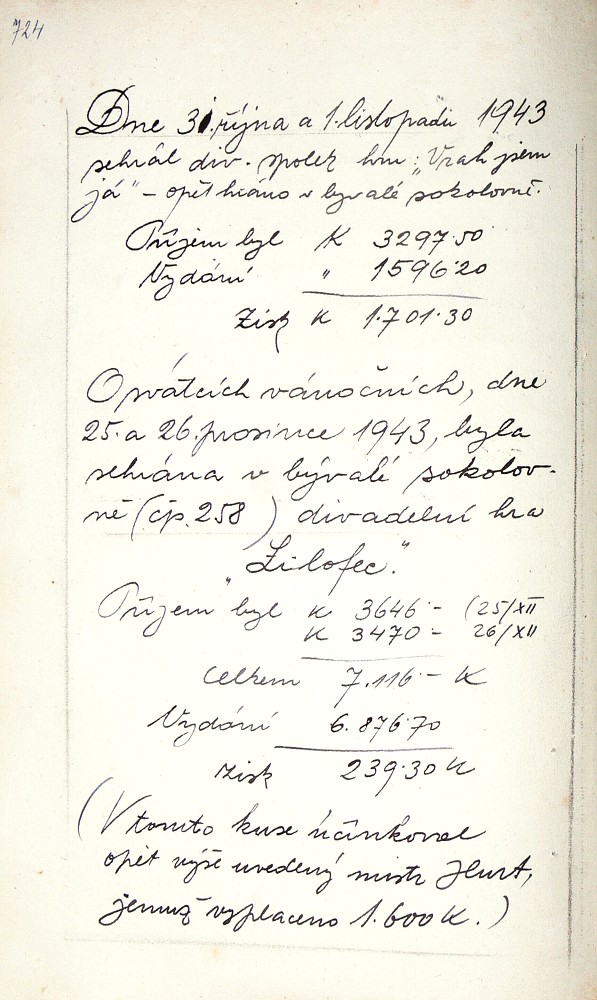 724
Dne 31. října a 1. listopadu 1943
sehrál div. spolek hru: „Vrah jsem
já" – opět hráno v bývalé sokolovně.
Příjem byl K 3297·50
Vydání " 1596·20
Zisk K 1.701·30
O svátcích vánočních, dne
25. a 26. prosince 1943, byla
sehrána v bývalé sokolov-
ně (čp. 258) divadelní hra
„Lilofee."
Příjem byl K 3646 – (25/XII
K 3470 – 26/XII
Celkem 7.116 – K
Vydání 6.876·70
zisk 239·30 K
(V tomto kuse účinkoval
opět výše uvedený mistr Hurt,
jemuž vyplaceno 1.600 K.)